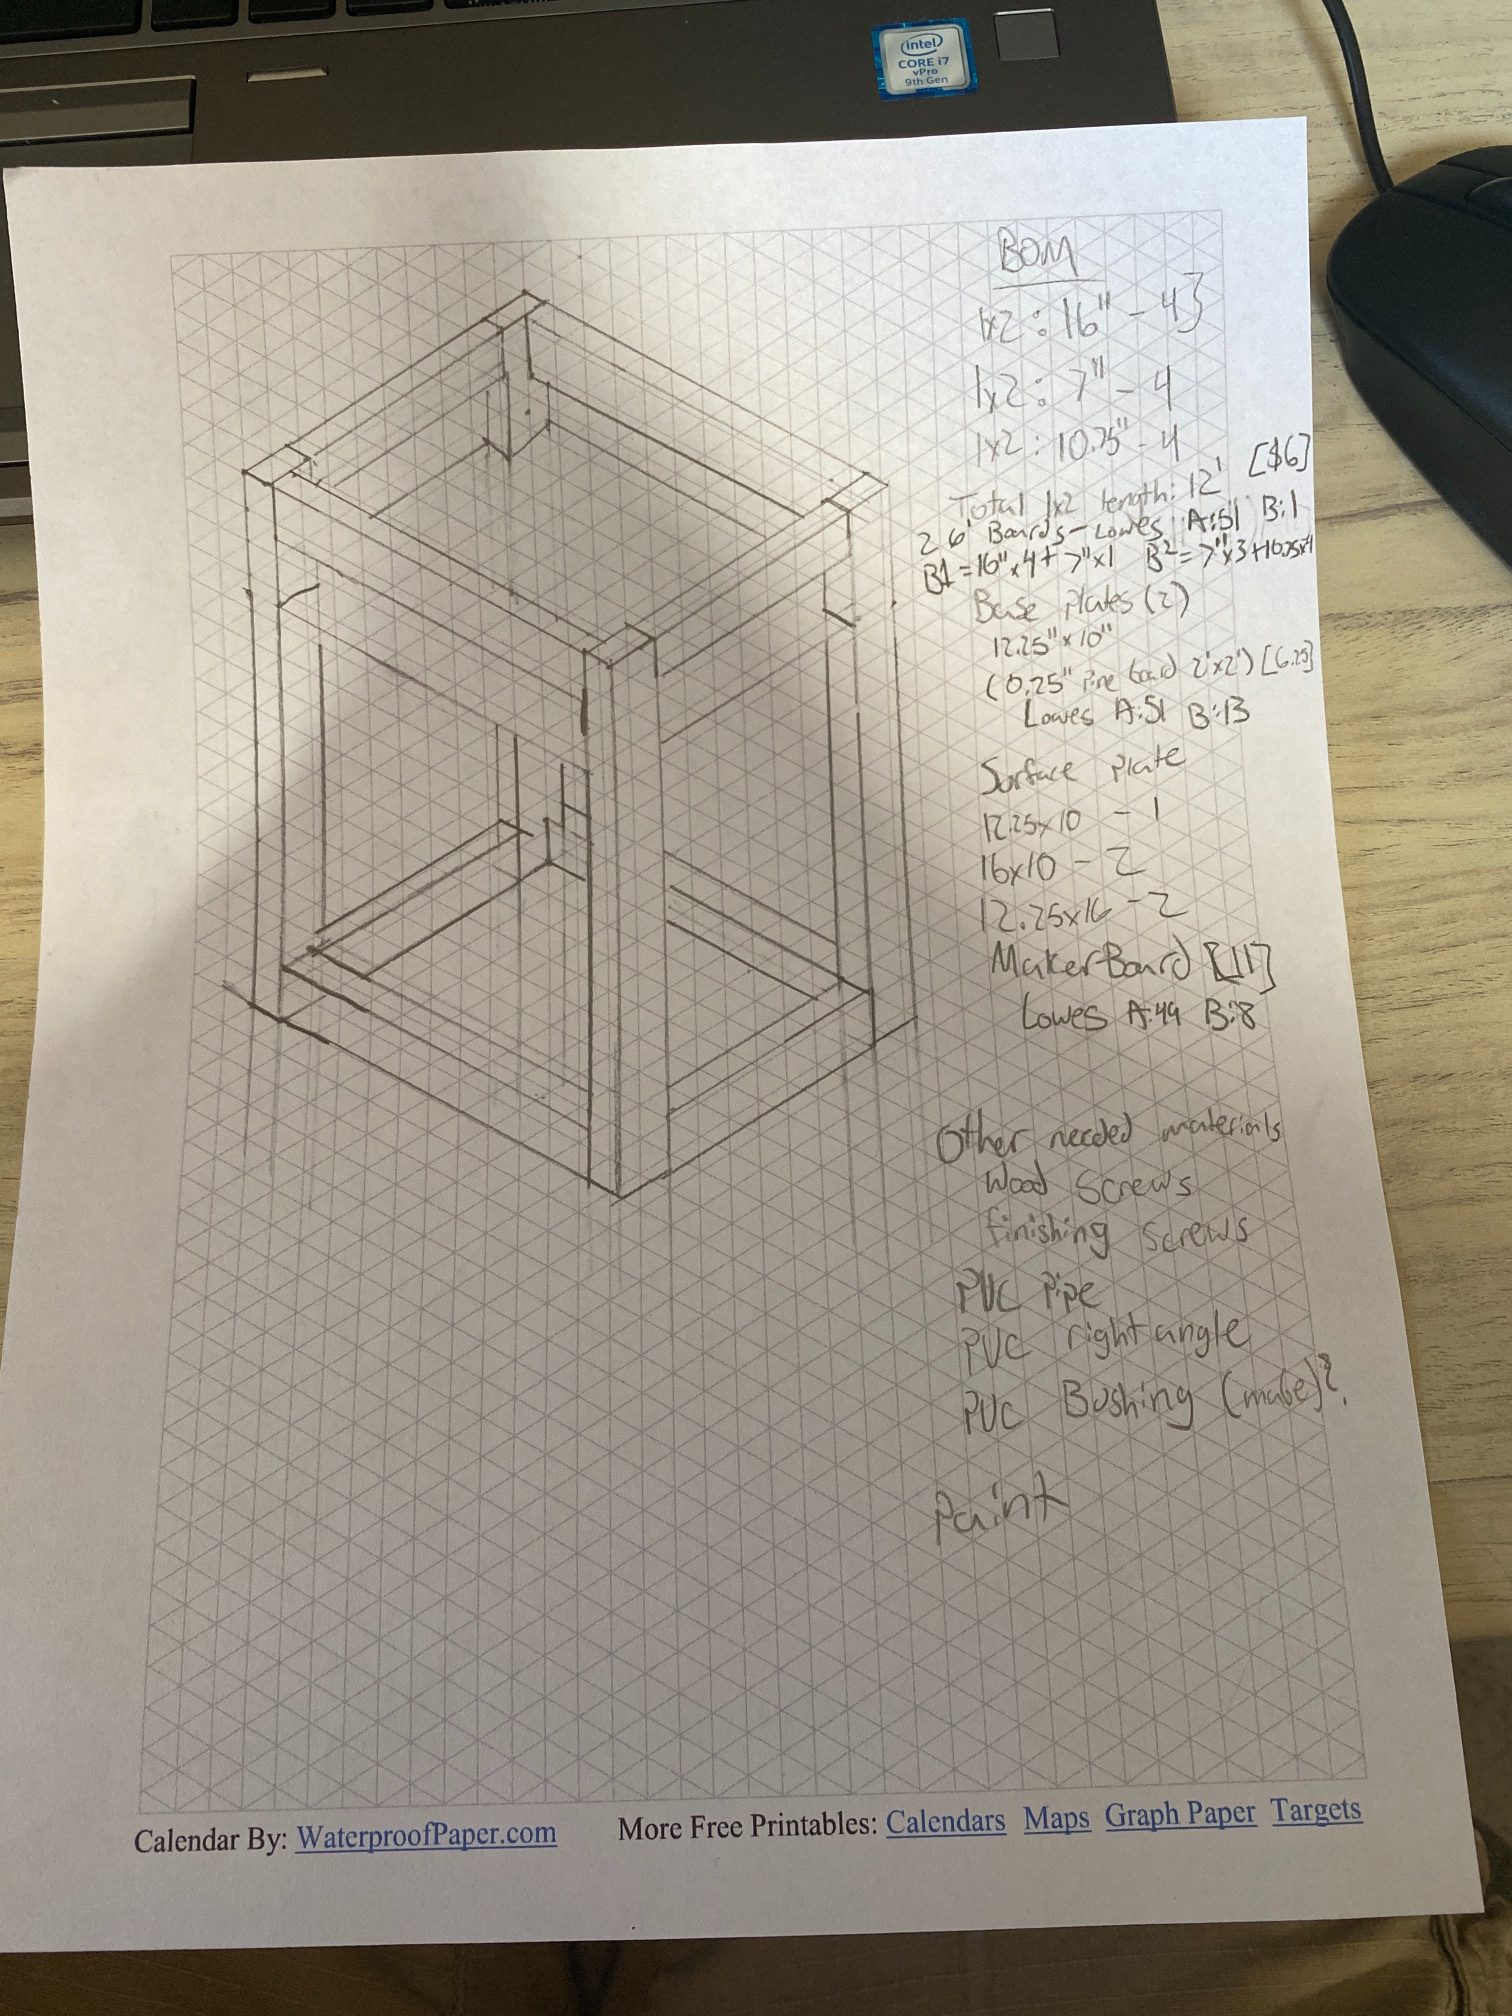 intel
CORE i7
vPro
9th Gen
BOM
1x2 : 16" - 4}
1x2 : 7" - 4
1x2 : 10.75" - 4
Total 1x2 length: 12' [$6]
2 6' Boards - Lowes A:51 B:1
B1 = 16"x4 + 7"x1 B2 = 7"x3+10.75x4
Base Plates (2)
12.25" x 10"
(0.25" Pine board 2'x2') [6.25]
Lowes A:51 B:13
Surface Plate
12.25x10 - 1
16x10 - 2
12.25x16 - 2
MakerBoard [11]
Lowes A:49 B:8
Other needed materials
Wood Screws
finishing screws
PVC Pipe
PVC right angle
PVC Bushing (mabe)?
Paint
Calendar By: WaterproofPaper.com More Free Printables: Calendars Maps Graph Paper Targets